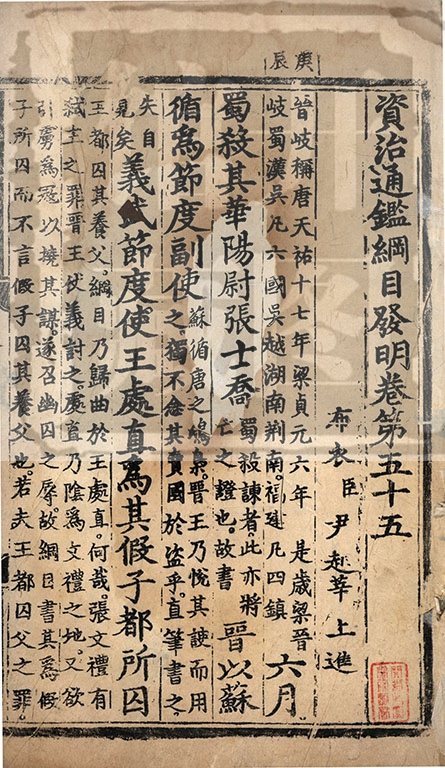 庚辰
資治通鑑綱目發明卷第五十五
布衣臣尹起莘上進
晉岐稱唐天祐十七年梁貞元六年 是歲梁晉
岐蜀漢吳凡六國吳越湖南荆南福建凡四鎮
六月
蜀殺其華陽尉張士喬
蜀殺諫者此亦將
亡之證也故書
晉以蘇
循爲節度副使
蘇循唐之鴟梟晉王乃悅其諛而用
之獨不念其賣國於盜乎直筆書之
失自
見矣
義武節度使王處直爲其假子都所囚
王都囚其養父綱目乃歸曲於王處直何哉張文禮有
弑主之罪晉王仗義討之處直乃陰爲文禮之地又欲
引虜爲寇以撓其謀遂召幽囚之辱故綱目書其爲假
子所囚而不言假子囚其養父也若夫王都囚父之罪